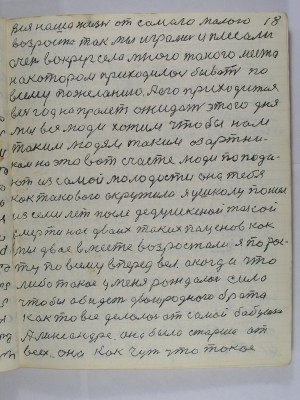 вся наша жизнь от самаго малого 18
возроста так мы играли и плесали
очен вокруг села много такого места
на котором приходилос бывать по
всему пожеланию, его приходится
вес год на пролет ожидать этого дня
мы вси люди хотим чтобы нам
таким людям таким азартни-
кам на это вот счастье люди попода-
ют из самой молодости она тебя
как такового окружила я у школу пошол
из семи лет после дедушкеной такой
смерти нас двоих таких пацанов как
мы двое вместе возростали я по рос-
ту по всему вперед вел, а когда что
либо такое у меня рождалос сило
чтобы обидеть двоюродного брата
как то все делолос от самой бабушки
Аликсандре, она была старше от
всех она как чуть что такое